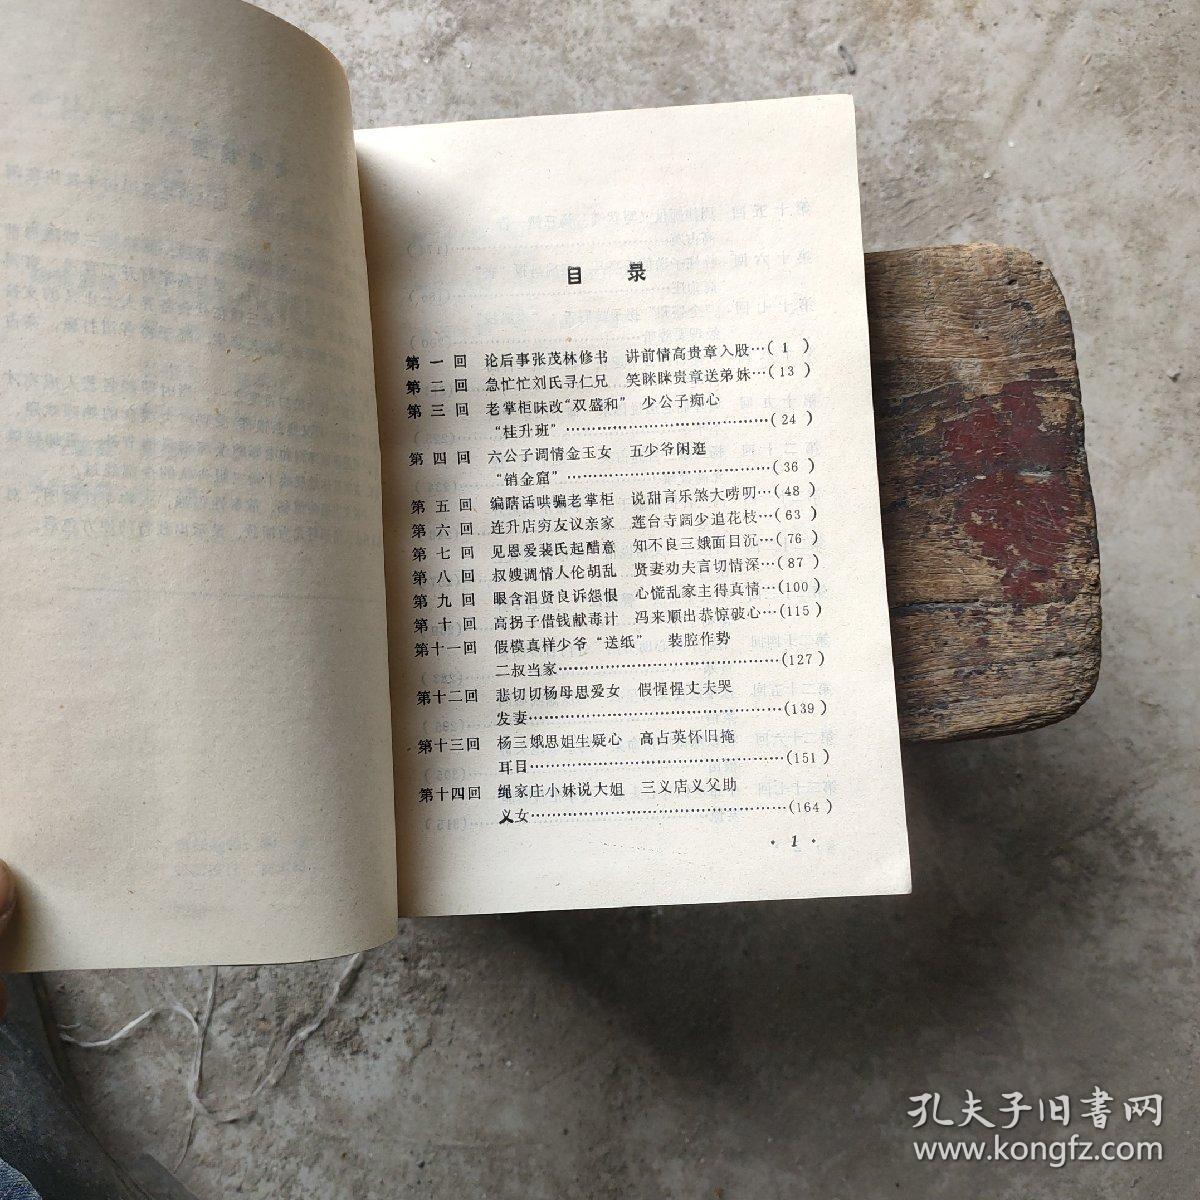 目 录
第 一 回 论后事张茂林修书 讲前情高贵章入股…( 1 )
第 二 回 急忙忙刘氏寻仁兄 笑眯眯贵章送弟妹…( 13 )
第 三 回 老掌柜昧改“双盛和” 少公子痴心
“桂升班”……………………………………( 24 )
第 四 回 六公子调情金玉女 五少爷闲逛
“销金窟”……………………………………( 36 )
第 五 回 编瞎话哄骗老掌柜 说甜言乐煞大唠叨…( 48 )
第 六 回 连升店穷友议亲家 莲台寺阔少追花枝…( 63 )
第 七 回 见恩爱裴氏起醋意 知不良三娥面目沉…( 76 )
第 八 回 叔嫂调情人伦胡乱 贤妻劝夫言切情深…( 87 )
第 九 回 眼含泪贤良诉怨恨 心慌乱家主得真情…(100 )
第 十 回 高拐子借钱献毒计 冯来顺出恭惊破心…(115 )
第十一回 假模真样少爷“送纸” 装腔作势
二叔当家……………………………………(127 )
第十二回 悲切切杨母思爱女 假惺惺丈夫哭
发妻…………………………………………(139 )
第十三回 杨三娥思姐生疑心 高占英怀旧掩
耳目…………………………………………(151 )
第十四回 绳家庄小妹说大姐 三义店义父助
义女…………………………………………(164 )
· 1 ·
孔夫子旧书网
www.kongfz.com